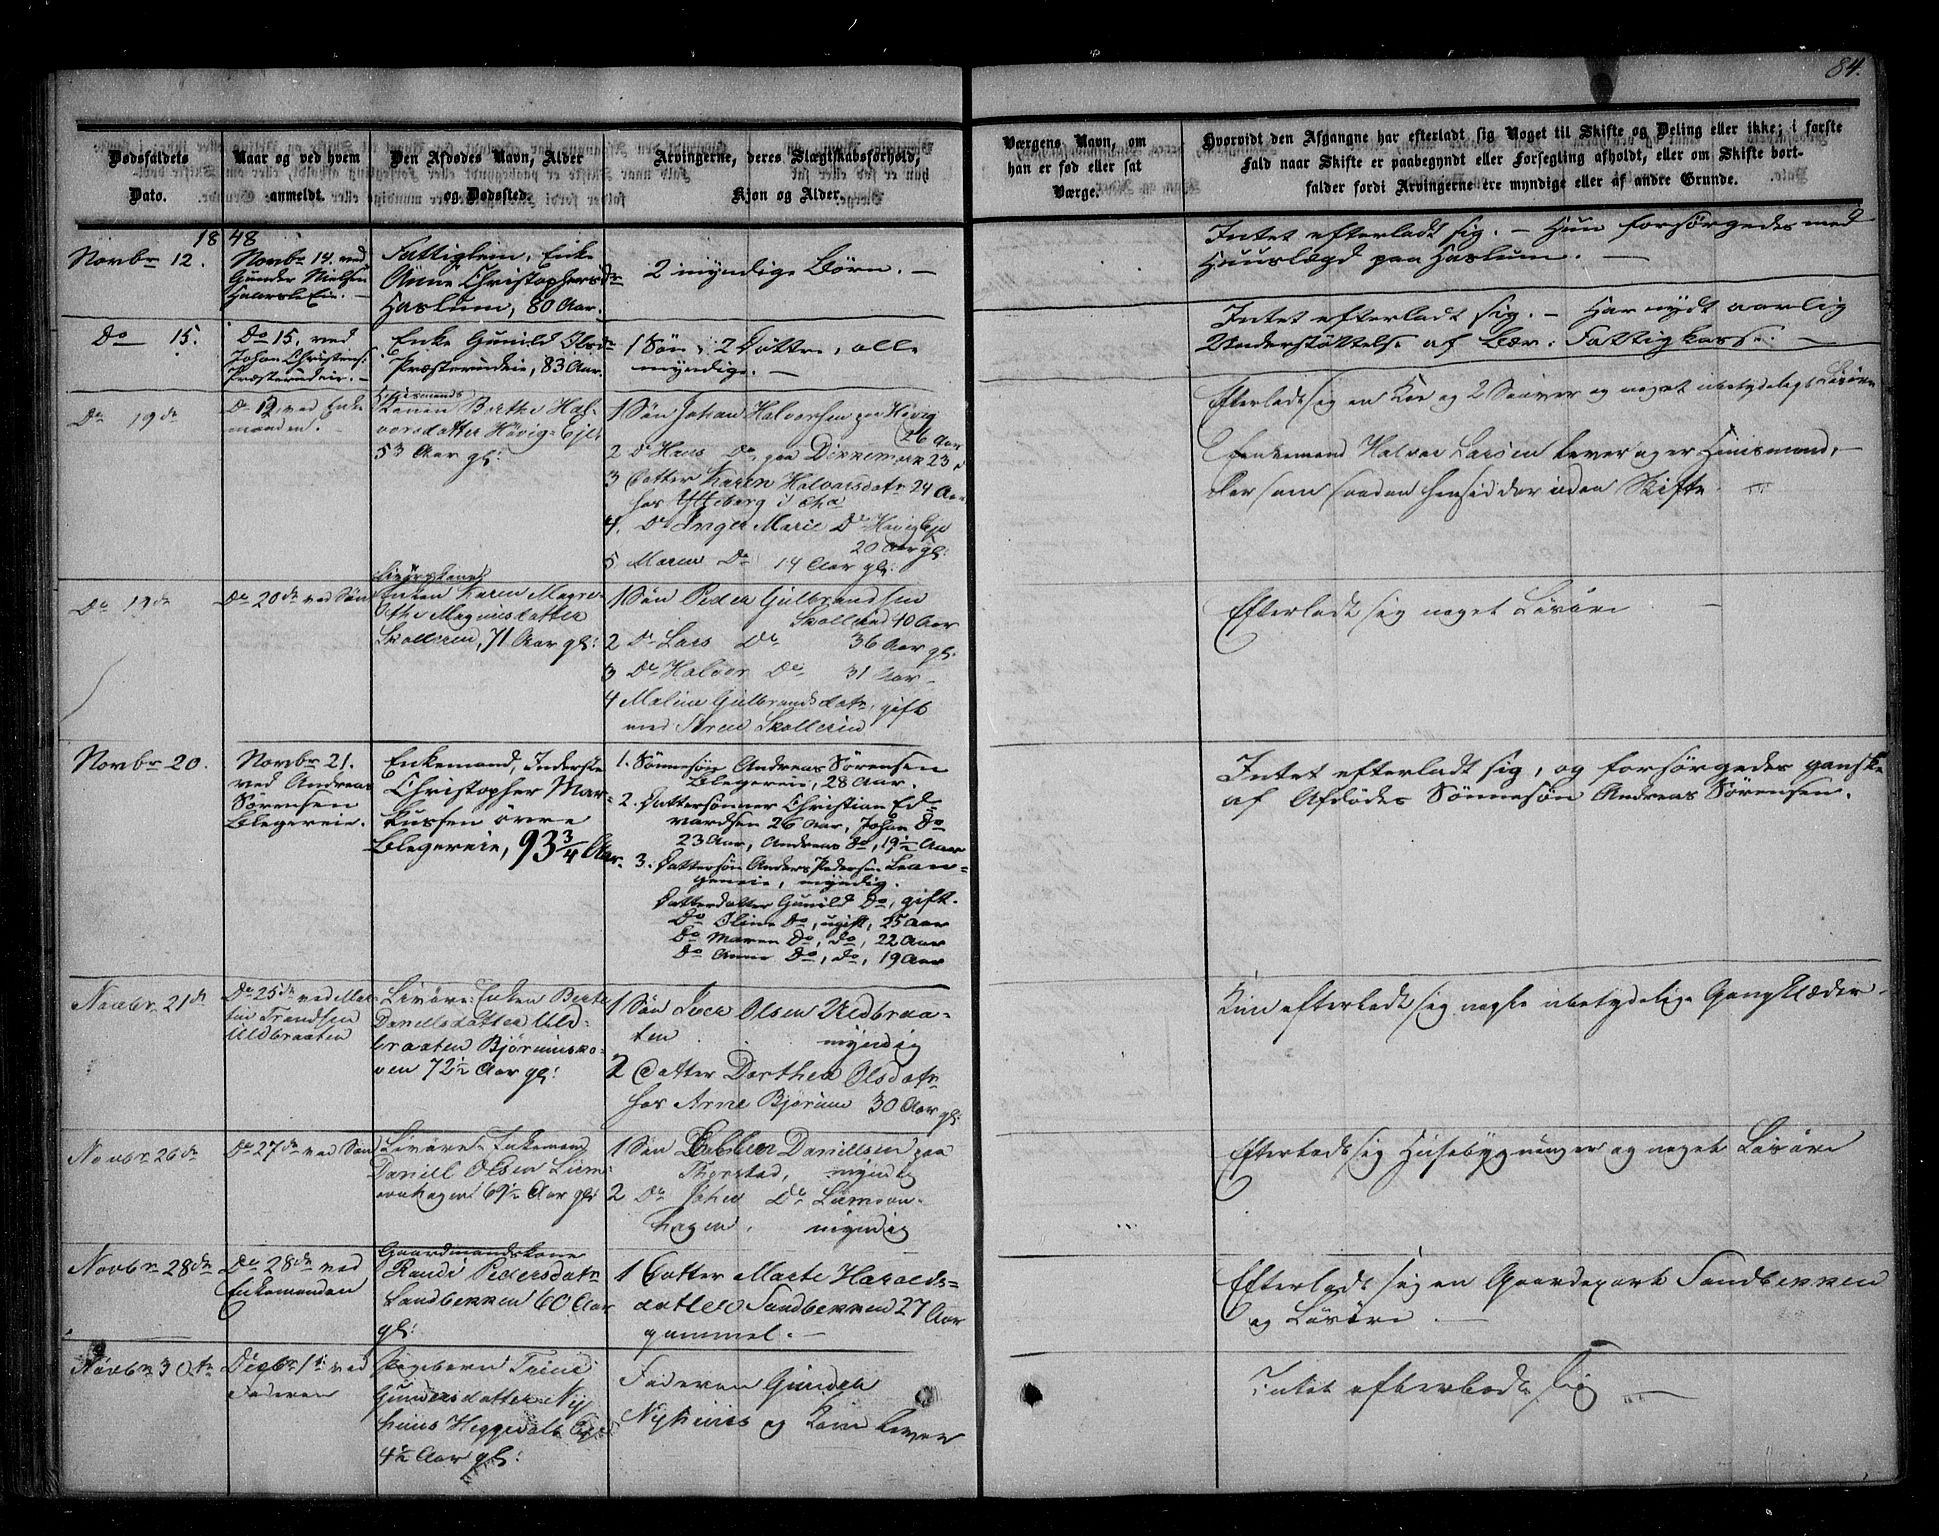 84.
Dødsfaldets
Dato.
Naar og ved hvem
anmeldt.
Den Afdødes Navn, Alder
og Dødssted.
Arvingerne, deres Slægtskabsforhold,
Kjøn og Alder.
Værgens Navn, om
han er fød eller sat
Værge.
Hvorvidt den Afgangne har efterladt sig Noget til Skifte og Deling eller ikke; i første
Fald naar Skifte er paabegyndt eller Forsegling afholdt, eller om Skifte bort-
falder fordi Arvingerne ere myndige eller af andre Grunde.
1848
Novbr 12.
Novbr 14. ved
Gunder Nielsen
Fattiglem, Enke
Anne Christophersdr
Haslum, 80 Aar.
2 myndige Børn. —
Intet efterladt sig. — Hun forsørgedes med
Huuslægd paa Haslum. —
Do 15.
Do 15. ved
Johan Christens:
Præsterudeie. —
Enke Gunild Olsdr
Præsterudeie, 83 Aar.
1 Søn, 2 Døttre, alle
myndige. —
Intet efterladt sig. — Har nydt aarlig
Understøttelse af Bær: Fattigkasse. —
Do 19de
Do 19 ved Enke
manden.
Huusmands
Konen Berthe Hal-
vorsdatter Høvig-Eje
53 Aar gl:
1 Søn Johan Halvorsen paa Høvig
26 Aar
2 Do Hans Do paa Dikkemark 23 d
3 Datter Karen Halvorsdatr 24 Aar
hos
4. Do Inger Marie Do Høvig Eje
20 Aar gl:
5 Maren Do 14 Aar gl:
Efterladt sig en Koe og 2 Sauver og noget ubetydeligt Løsøre
Enkemand Halvor Larsen lever og er Huusmand,
der som saadan hensidder uden Skifte.
Do 19de
Do 20de ved Søn
Enken Karen Magre-
the Magnusdatter
Skollerud, 71 Aar gl:
1 Søn Peder Gulbrandsen
Skollerud 40 Aar
2 Do Lars Do 36 Aar gl:
3 Do Halvor Do 31 Aar —
4 Maline Gulbrandsdatr, gift
med Skollerud
Efterladt sig noget Løsøre —
Novbr 20.
Novbr 21.
ved Andreas
Sørensen
Blegereie.
Enkemand, Inderste
Christopher Mar-
kussen øvre
Blegereie, 93 3/4 Aar.
1. Sønnesøn Andreas Sørensen
Blegereie, 28 Aar.
2. Dattersønner Christian Ed-
vardsen 26 Aar, Johan Do
23 Aar, Andreas Do, 19 1/2 Aar
3. Dattersøn Anders Pedersen
myndig.
Datterdatter Gunild Do, gift.
Do Oline Do, ugift, 25 Aar
Do Maren Do, do, 22 Aar
Do Anne Do, do, 19 Aar
Intet efterladt sig, og forsørgedes ganske
af Afdødes Sønnesøn Andreas Sørensen.
Novbr. 21de
Do 25de ved Mar-
tin Trondsen
Uldbraaten
Livøre-Enken Berte
Danielsdatter Uld-
braaten Bjørumsko-
ven 72 1/2 Aar gl:
1 Søn Iver Olsen Uldbraa-
ten myndig
2 Datter Dorthea Olsdatr
hos Arne Bjørum 30 Aar gl:
Kun efterladt sig nogle ubetydelige Gangklæder
Novbr 26de
Do 27de ved Søn
Livøre-Enkemand
Daniel Olsen
69 1/2 Aar gl:
1 Søn Danielsen paa
Thorstad, myndig
2 Do Johan Do
hagen. myndig
Efterladt sig Husebygninger og noget Løsøre
Novbr 28de
Do 28de ved
Enkemanden
Gaardmandskone
Randi Pedersdatr
Sandbekken 60 Aar
gl:
1 Datter Marte Harolds-
datter Sandbekken 27 Aar
gammel. —
Efterladt sig en Gaardepart Sandbekken
og Løsøre. —
Novbr 30te
Decbr 1te ved
Faderen
Trine
Gundersdatter Ny-
huus Heggedals Eje
4 1/2 Aar gl:
Faderen Gunder
Nyhuus og Kone lever
Intet efterladt sig —